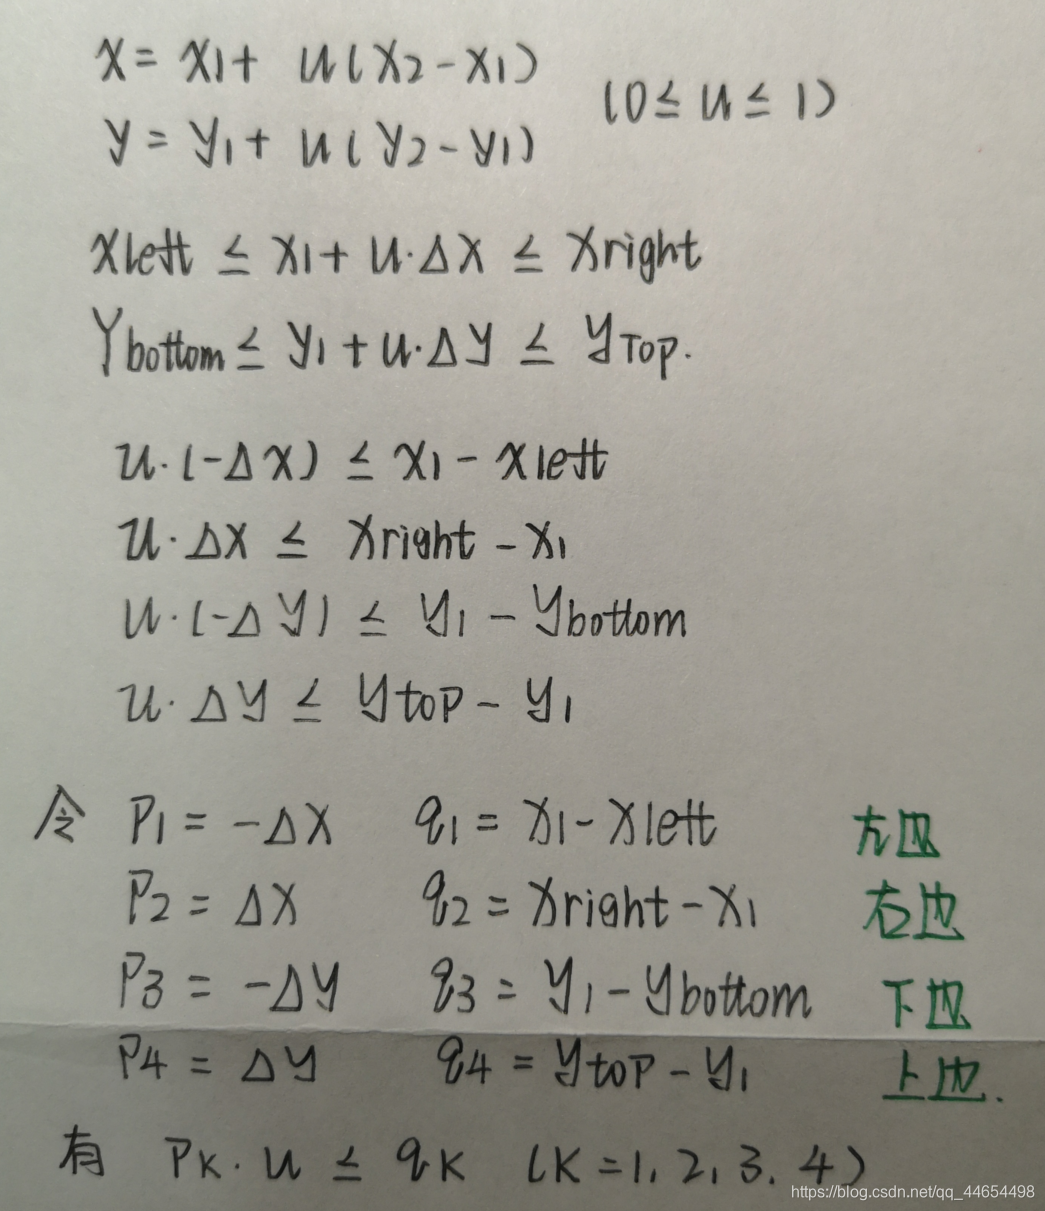 x = x1 + u(x2 - x1)
(0 ≤ u ≤ 1)
y = y1 + u(y2 - y1)
xleft ≤ x1 + u·Δx ≤ xright
Ybottom ≤ y1 + u·Δy ≤ yTop.
u·(-Δx) ≤ x1 - xleft
u·Δx ≤ xright - x1
u·(-Δy) ≤ y1 - ybottom
u·Δy ≤ ytop - y1
令 P1 = -Δx q1 = x1 - xleft 左边
P2 = Δx q2 = xright - x1 右边
P3 = -Δy q3 = y1 - ybottom 下边
P4 = Δy q4 = ytop - y1 上边.
有 PK·u ≤ qK (K = 1, 2, 3. 4)
https://blog.csdn.net/qq_44654498